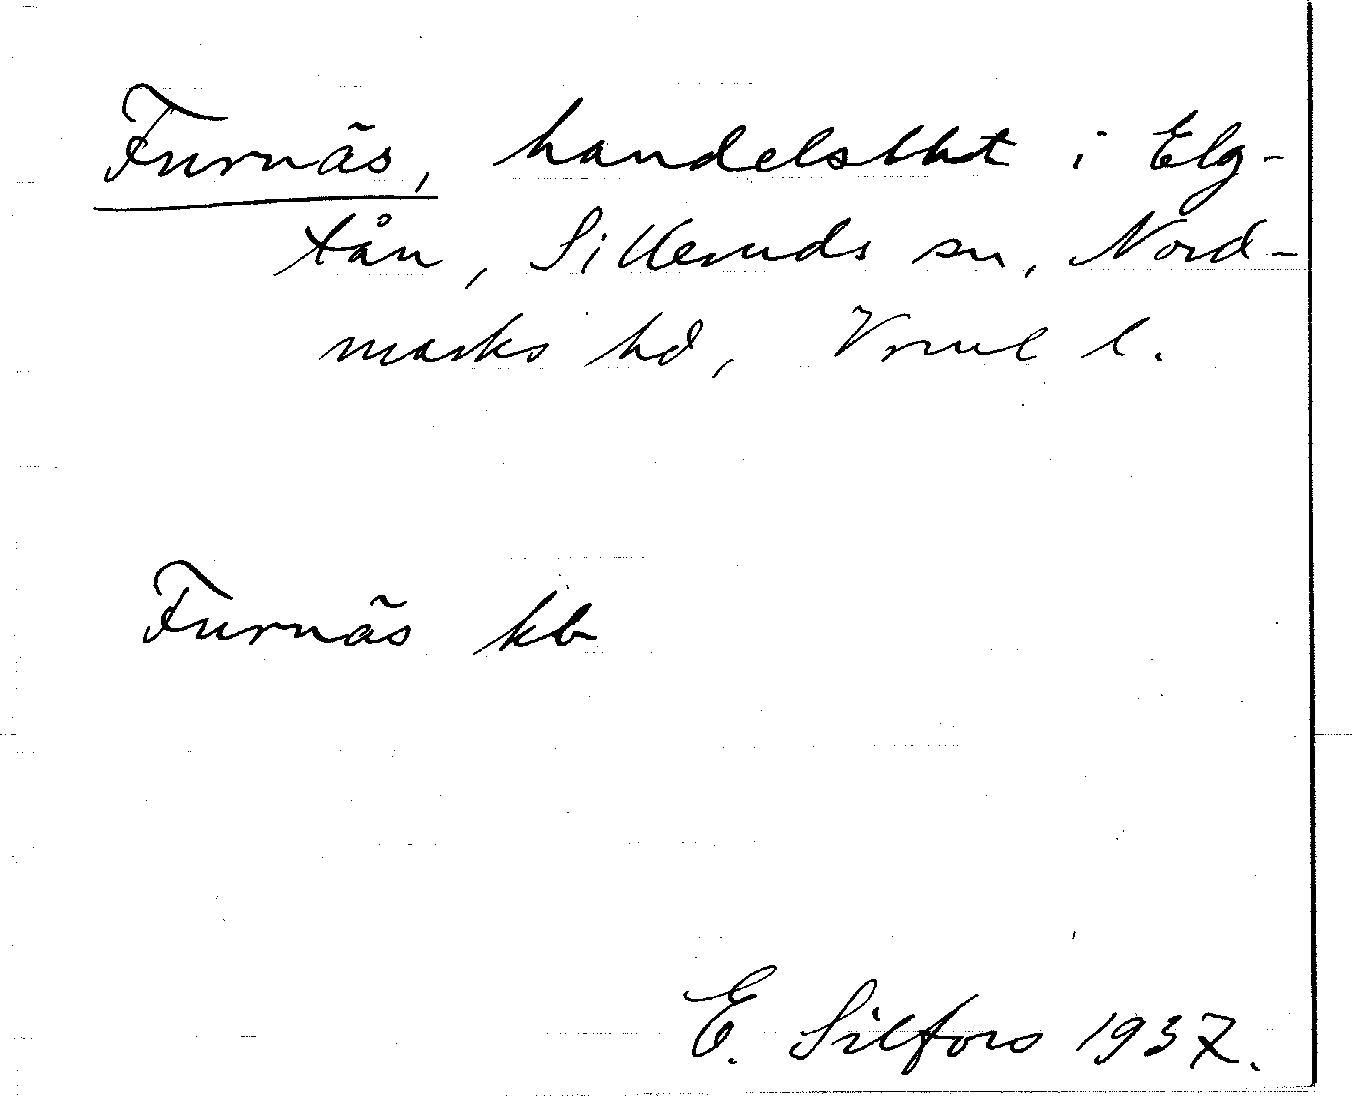 Furnäs, handelslht i Elg-
tån, Silleruds sn, Nord-
marks hd, Vrml l.
Furnäs kb
E. Silfors 1937.